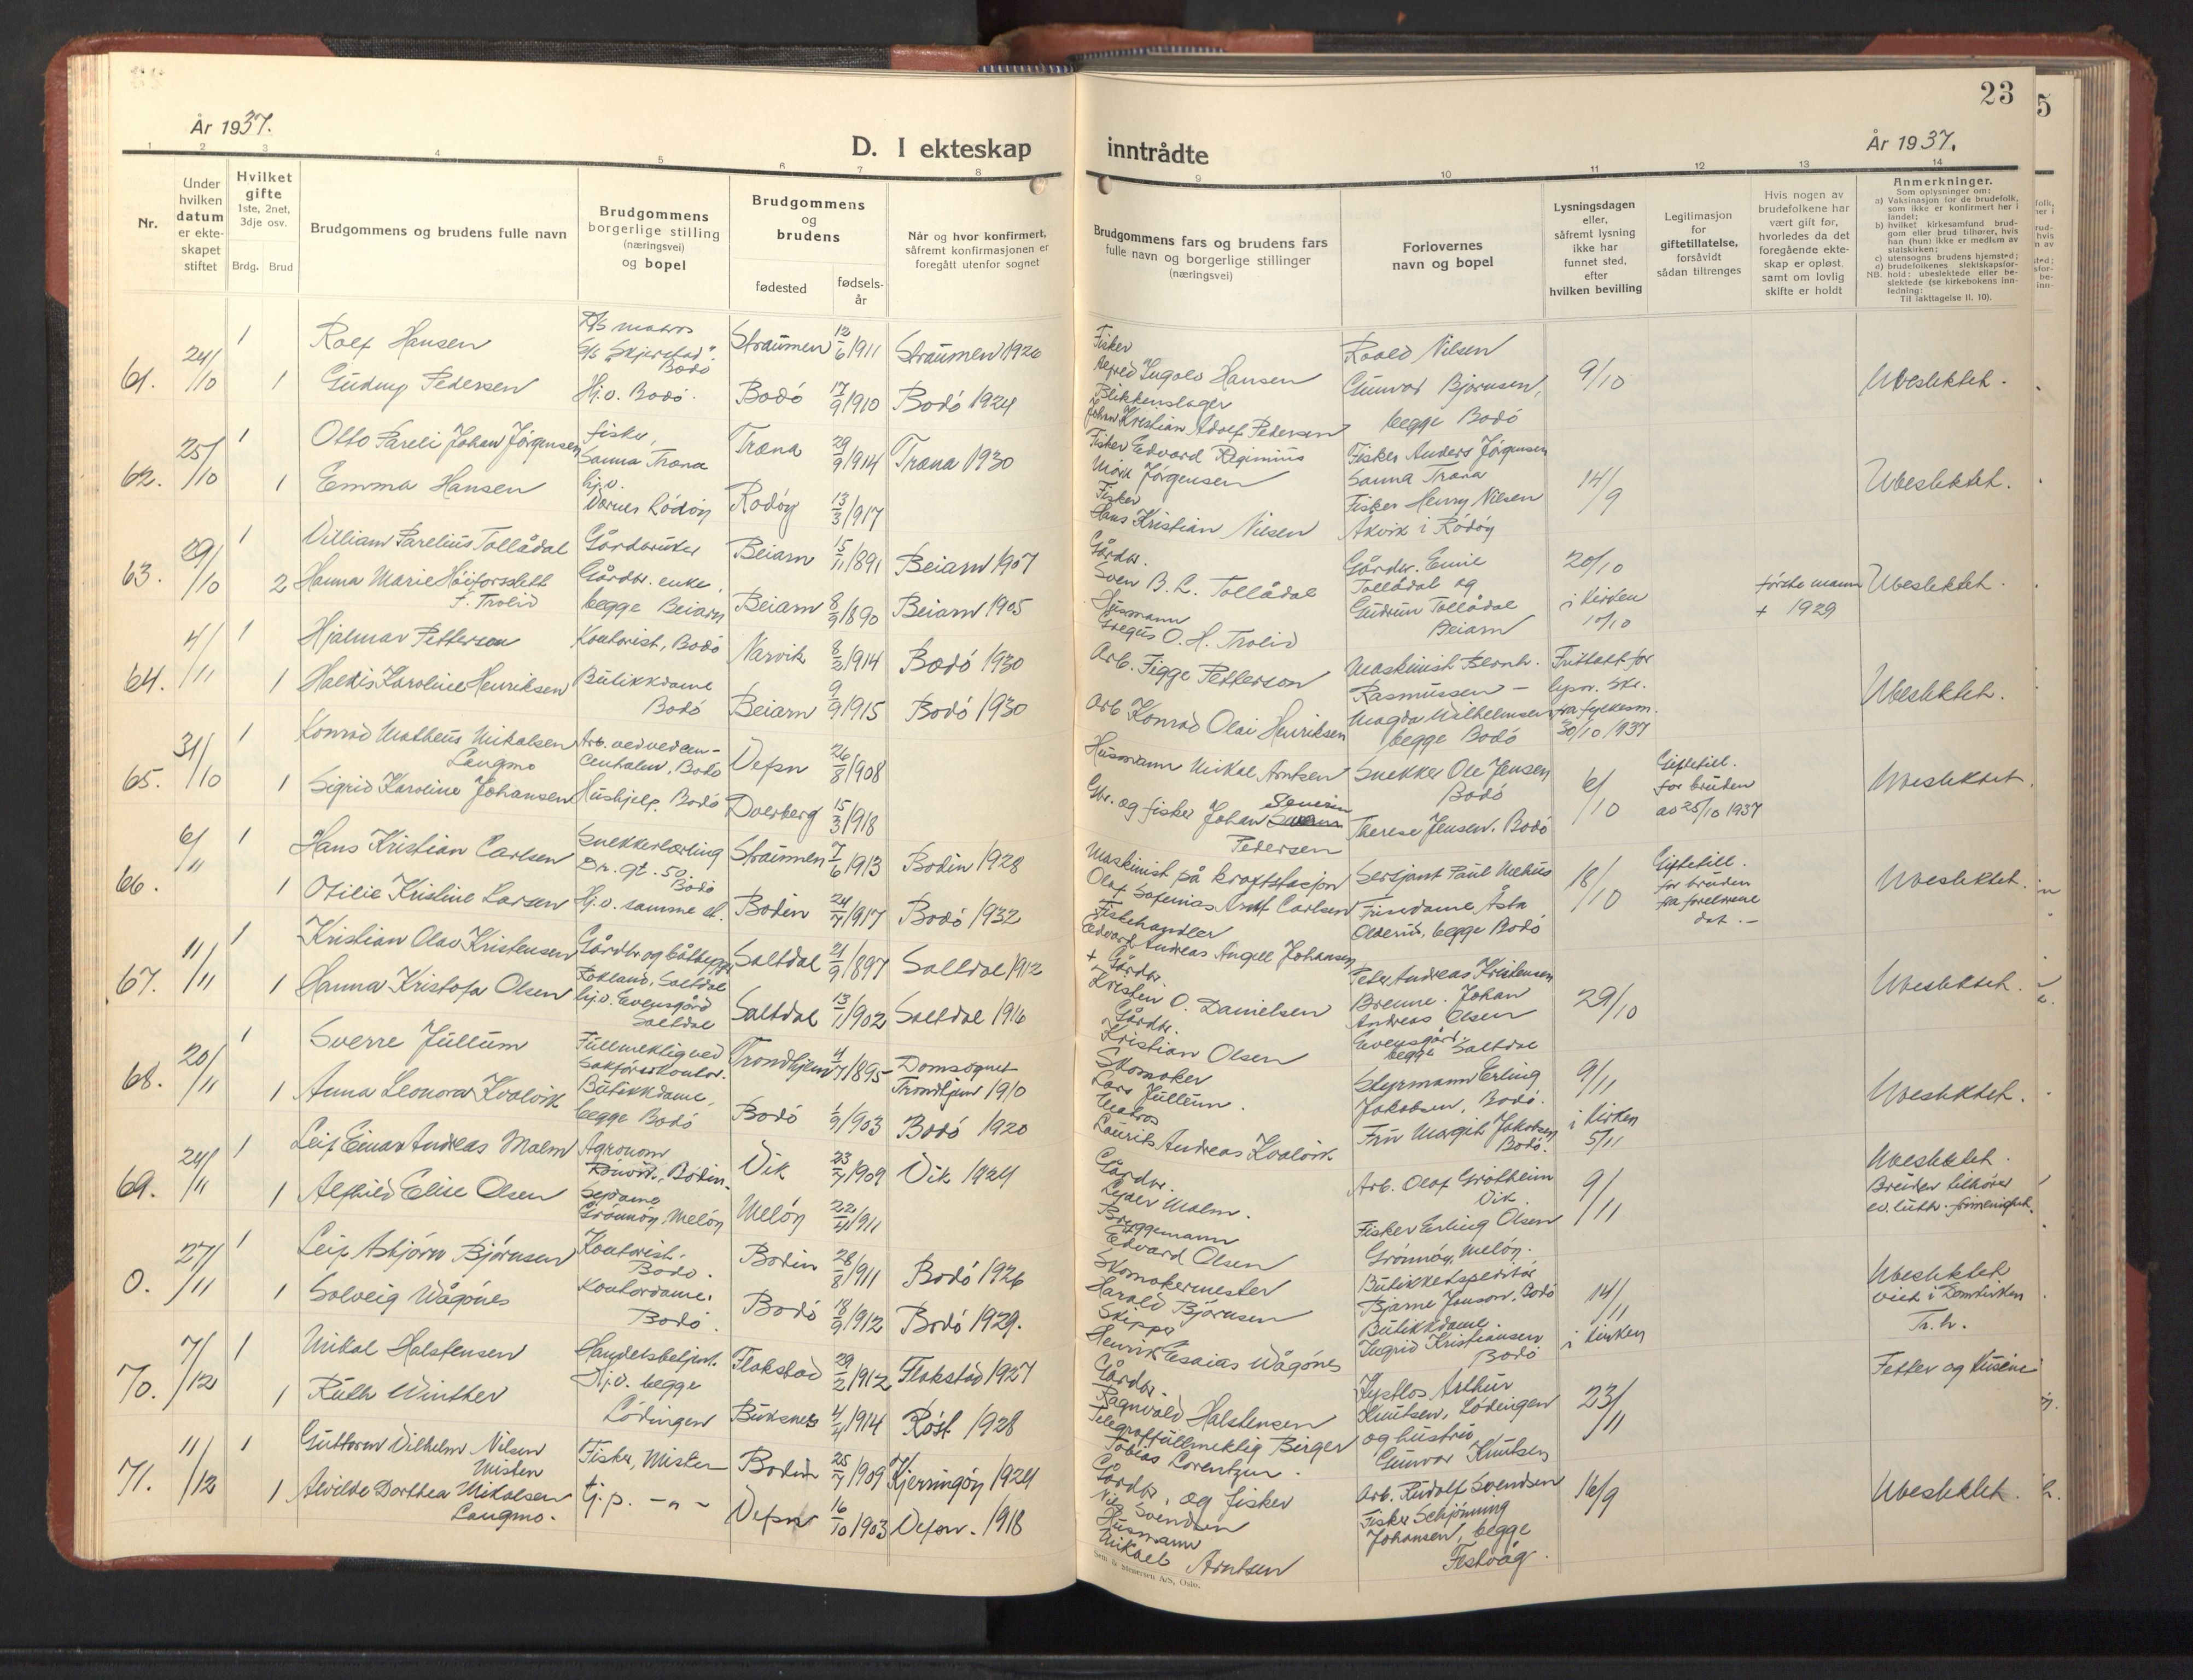 23
År 1937.
D. I ekteskap inntrådte
År 1937.
1 2 3 4 5 6 7 8 9 10 11 12 13 14
Nr.
Under hvilken datum er ekteskapet stiftet
Hvilket gifte 1ste, 2net, 3dje osv.
Brdg. Brud
Brudgommens og brudens fulle navn
Brudgommens borgerlige stilling (næringsvei) og bopel
Brudgommens og brudens
fødested
fødselsår
Når og hvor konfirmert, såfremt konfirmasjonen er foregått utenfor sognet
Brudgommens fars og brudens fars fulle navn og borgerlige stillinger (næringsvei)
Forlovernes navn og bopel
Lysningsdagen eller, såfremt lysning ikke har funnet sted, efter hvilken bevilling
Legitimasjon for giftetillatelse, forsåvidt sådan tiltrenges
Hvis nogen av brudefolkene har vært gift før, hvorledes da det foregående ekteskap er opløst, samt om lovlig skifte er holdt
Anmerkninger.
Som oplysninger om:
a) Vaksinasjon for de brudefolk, som ikke er konfirmert her i landet;
b) hvilket kirkesamfund brudgom eller brud tilhører, hvis han (hun) ikke er medlem av statskirken;
c) utensogns brudens hjemsted;
d) brudefolkenes slektskapsforhold: ubeslektede eller beslektede (se kirkebokens innledning:
NB. Til iakttagelse II. 10).
61. 24/10 1 Rolf Hansen matros "Skjerstad". Bodø Straumen 12/6 1911 Straumen 1926
1 Gudny Pedersen Hj.v. Bodø. Bodø 17/9 1910 Bodø 1924
Fisker Alfred Ingolv Hansen
Blikkenslager Johan Kristian Adolf Pedersen
Roald Nilsen
Gunvor Bjørnsen, begge Bodø
9/10
Ubeslektet.
62. 25/10 1 Otto Pareli Johan Jørgensen fisker, Sanna Træna Træna 29/9 1914 Træna 1930
1 Emma Hansen hj.v. Værnes Rødøy Rødøy 13/3 1917
Fisker Edvard Jørgensen
Fisker Hans Kristian Nilsen
Fisker Anders Jørgensen Sanna Træna
Fisker Henry Nilsen i Rødøy
14/9
Ubeslektet.
63. 29/10 1 William Parelius Tollådal Gårdbruker Beiarn 15/11 1891 Beiarn 1907
2 Hanna Marie Høiforslett f. Trolid Gårdbr. enke, begge Beiarn Beiarn 8/9 1890 Beiarn 1905
Gårdbr. Sven B. L. Tollådal
Husmann Gregus O. H. Trolid
Gårdbr. Emil Tollådal og Gudrun Tollådal Beiarn
20/10 i kirken 10/10
første mann + 1929
Ubeslektet.
64. 4/11 1 Hjalmar Petterson Kontorist, Bodø Narvik 8/2 1914 Bodø 1930
1 Haldis Karoline Henriksen Butikkdame Bodø Beiarn 9/9 1915 Bodø 1930
Arb. Figge Petterson
Arb. Konrad Olai Henriksen
Maskinist Bernh. Rasmussen –
Magda Wilhelmsen begge Bodø
Fritatt for lysn. skr. fra fylkesm. 30/10 1937
Ubeslektet.
65. 31/10 1 Konrad Matheus Mikalsen Langmo Arb. ved vedcentralen, Bodø Vefsn 26/8 1908
1 Sigrid Karoline Johansen Hushjelp. Bodø Dverberg 15/3 1918
Husmann Mikal Arntsen
Gbr. og fisker Johan Severin Pedersen
Snekker Ole Jensen Bodø
Therese Jensen. Bodø
6/10
Giftetill. for bruden av 25/10 1937
Ubeslektet.
66. 6/11 1 Hans Kristian Carlsen Snekkerlærling Dr. gt. 50. Bodø Straumen 7/6 1913 Bodin 1928
1 Otilie Kristine Larsen Hj.v. samme st. Bodin 24/7 1917 Bodø 1932
Maskinist på kraftstasjon Olaf Sofenias Carlsen
Fiskehandler Edvard Andreas Angell Johansen
Sersjant Paul Mehus
Frisedame Åsta, begge Bodø
18/10
Giftetill. for bruden fra foreldrene dat. –
Ubeslektet.
67. 11/11 1 Kristian Olav Kristensen Gårdbr. og båtbygger Rokland, Saltdal Saltdal 21/9 1897 Saltdal 1912
1 Hanna Kristofa Olsen hj.v. Evensgård Saltdal Saltdal 13/11 1902 Saltdal 1916
+ Gårdbr. Kristen O. Danielsen
Gårdbr. Kristian Olsen
Peter Andreas Kristensen Brenne. Johan Andreas Olsen Evensgård. begge Saltdal
29/10
Ubeslektet.
68. 20/11 1 Sverre Jullum Fullmektig ved Sakførerkontor. Trondhjem 4/7 1895 Domsognet Trondhjem 1910
1 Anna Leonora Kvalvik Butikkdame, begge Bodø Bodø 1/9 1903 Bodø 1920
Skomaker Lars Jullum.
Matros Laurits Andreas Kvalvik
Styrmann Erling Jakobsen, Bodø.
Fru Margit Jakobsen Bodø.
9/11 i kirken 5/11
Ubeslektet.
69. 24/11 1 Leif Einar Andreas Malm Agronom Rønvik, Bodin. Vik 23/7 1909 Vik 1924
1 Alfhild Elise Olsen Grønnøy, Meløy Meløy 22/4 1911
Gårdbr. Peder Malm.
Bryggemann Edvard Olsen
Arb. Olaf Grotheim Vik.
Fisker Erling Olsen Grønnøy, Meløy.
9/11
Ubeslektet.
Bruden tilhører ev. luth. frimenighet.
0. 27/11 1 Leif Asbjørn Bjørnsen Kontorist. Bodø. Bodin 28/8 1911 Bodø 1926
1 Solveig Vågønes Kontordame. Bodø. Bodø 18/9 1912 Bodø 1929.
Skomakermester Harald Bjørnsen
Skipper Henrik Esaias Vågønes
Butikkekspeditør Bjarne Jonson, Bodø
Butikkdame. Ingrid Kristiansen Bodø
14/11 i kirken
Ubeslektet
viet i Domkirken Tr.h.
70. 7/12 1 Mikal Halstensen Handelsbetjent. Flakstad 29/2 1912 Flakstad 1927
1 Ruth Winther Hj.v. begge Lødingen Buksnes 4/4 1914 Røst 1928
Gårdbr. Ragnvald Halstensen
Telegraffullmektig Birger Tobias Lorentzen.
Arthur Knutsen, Lødingen og hustru Gunvor Knutsen
23/11
Fetter og kusine
71. 11/12 1 Guttorm Vilhelm Nilsen Misten Fisker, Misten Bodin 25/7 1909 Kjerringøy 1924
1 Alvilde Dorthea Mikalsen Langmo. tj.p. – " – Vefsn 16/10 1903 Vefsn. 1918
Gårdbr. og fisker Nils Svendsen
Husmann Mikael Arntsen
Arb. Rudolf Svendsen
Fisker Schjønning Johansen, begge Festvåg.
16/9
Ubeslektet.
Sem & Stenersen A/S, Oslo.